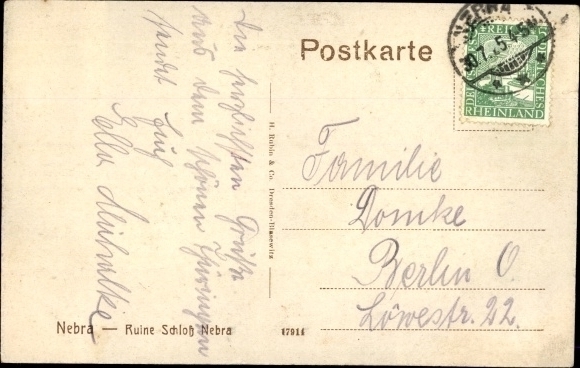 Die herzlichsten Grüße
aus dem schönen Thüringen
sendet Euch
Ella
Postkarte
NEBRA
30.7.25
DEUTSCHES REICH
RHEINLAND
H. Rubin & Co. Dresden-Blasewitz
Familie
Domke
Berlin O.
Löwestr. 22.
Nebra — Ruine Schloß Nebra
47914